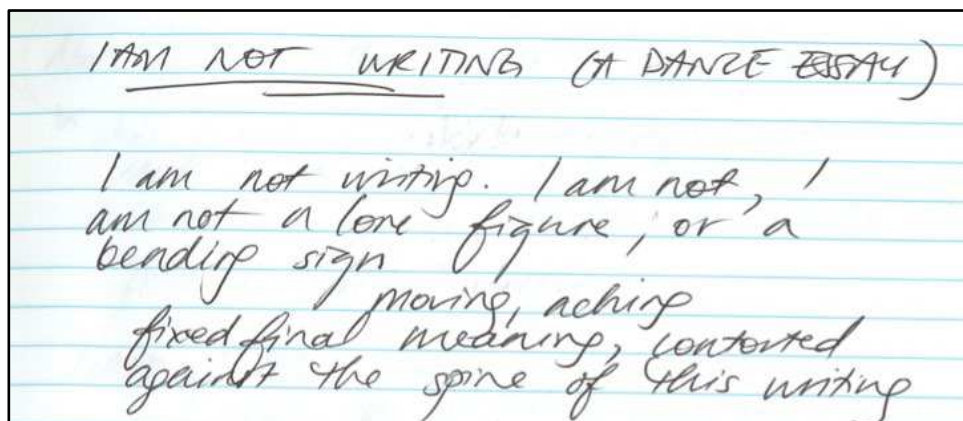 I AM NOT WRITING (A DANCE ESSAY)
I am not writing. I am not, I
am not a lone figure, or a
bending sign
moving, aching
fixed final meaning, contorted
against the spine of this writing